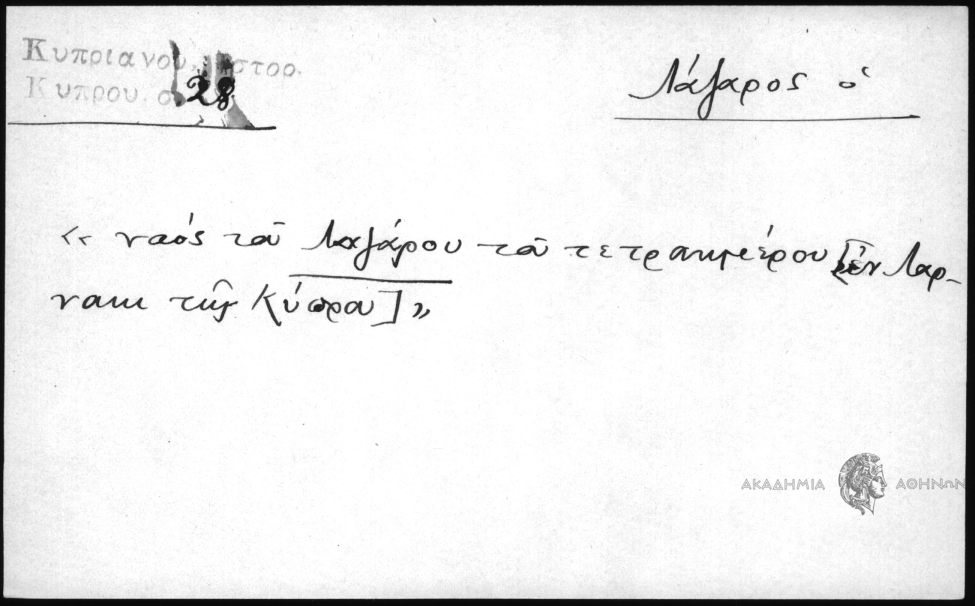 Κυπριανού, Ιστορ.
Κύπρου, σ. 28
Λάζαρος ὁ
« ναός τοῦ Λαζάρου τοῦ τετραημέρου [ἐν Λαρ-
νακι τῆς Κύπρου] »
ΑΚΑΔΗΜΙΑ ΑΘΗΝΩΝ